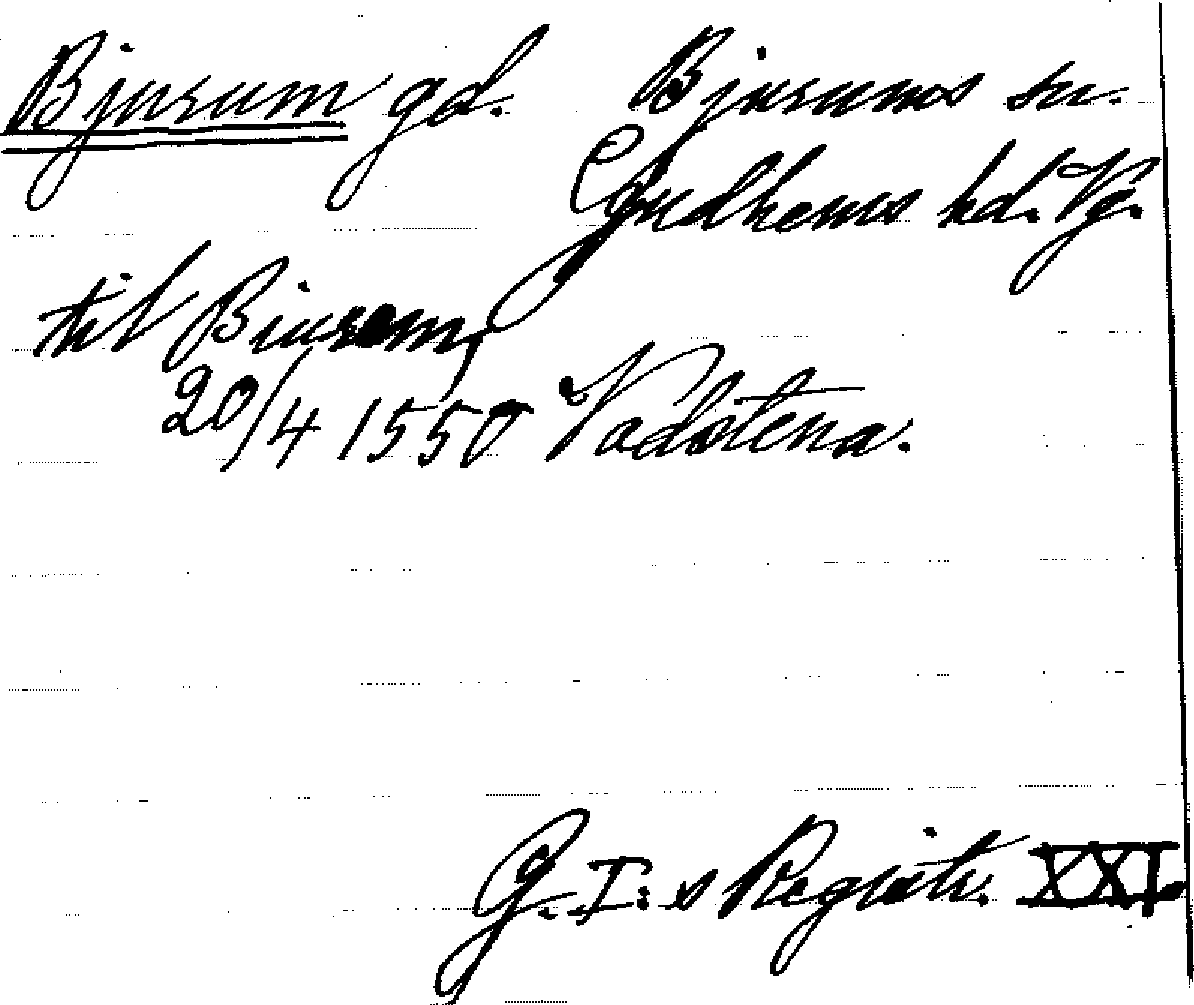 Bjurum gd. Bjurums sn.
Gudhems hd. Vg.
til Biurem,
20/4 1550 Vadstena.
G. I:s Registr. XXI.